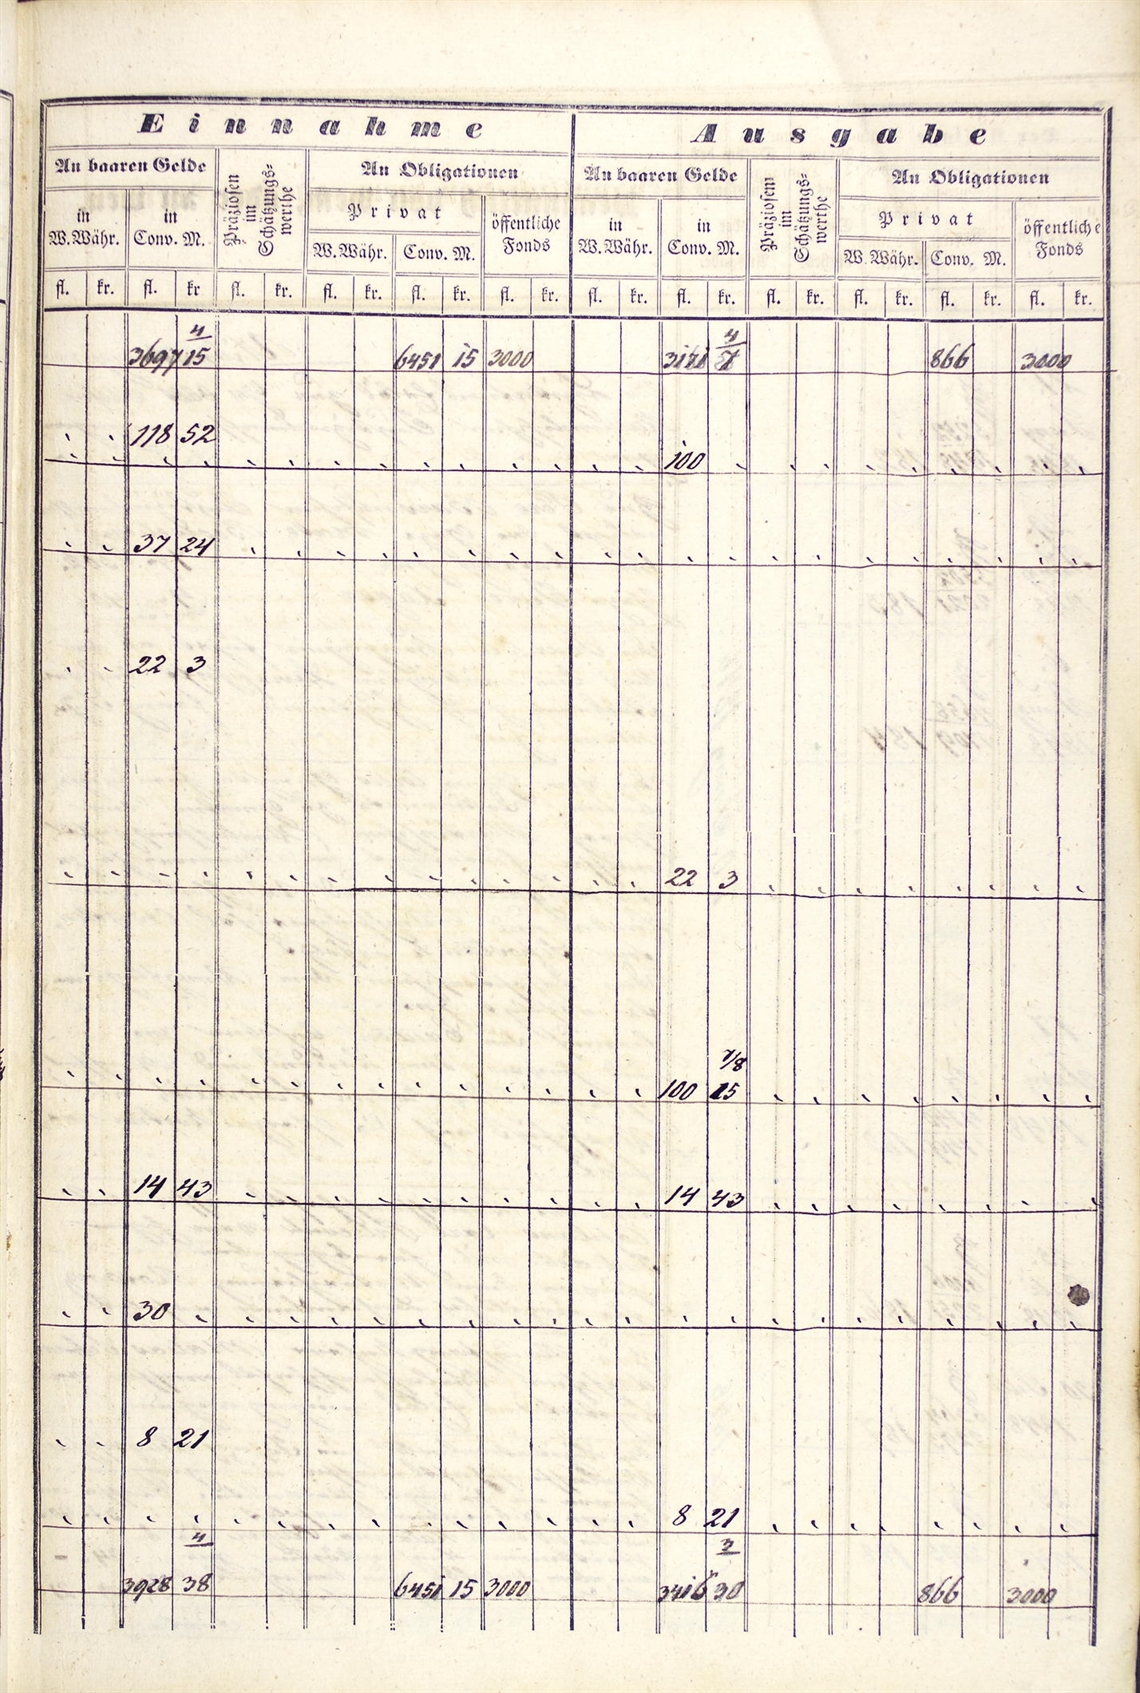 Einnahme Ausgabe
An baaren Gelde Präziosen im Schätzungswerthe An Obligationen An baaren Gelde Präziosen im Schätzungswerthe An Obligationen
in W.Währ. in Conv. M. Privat öffentliche Fonds in W.Währ. in Conv. M. Privat öffentliche Fonds
W.Währ. Conv. M. W.Währ. Conv. M.
fl. kr. fl. kr fl. kr. fl. kr. fl. kr. fl. kr. fl. kr. fl. kr. fl. kr. fl. kr. fl. kr. fl. kr.
4 4
3697 15 6451 15 3000 866 3000
118 52
100
37 24
22 3
22 3
7/8
100 15
14 43 14 43
30
8 21
8 21
4 3
3928 38 6451 15 3000 3416 30 866 3000